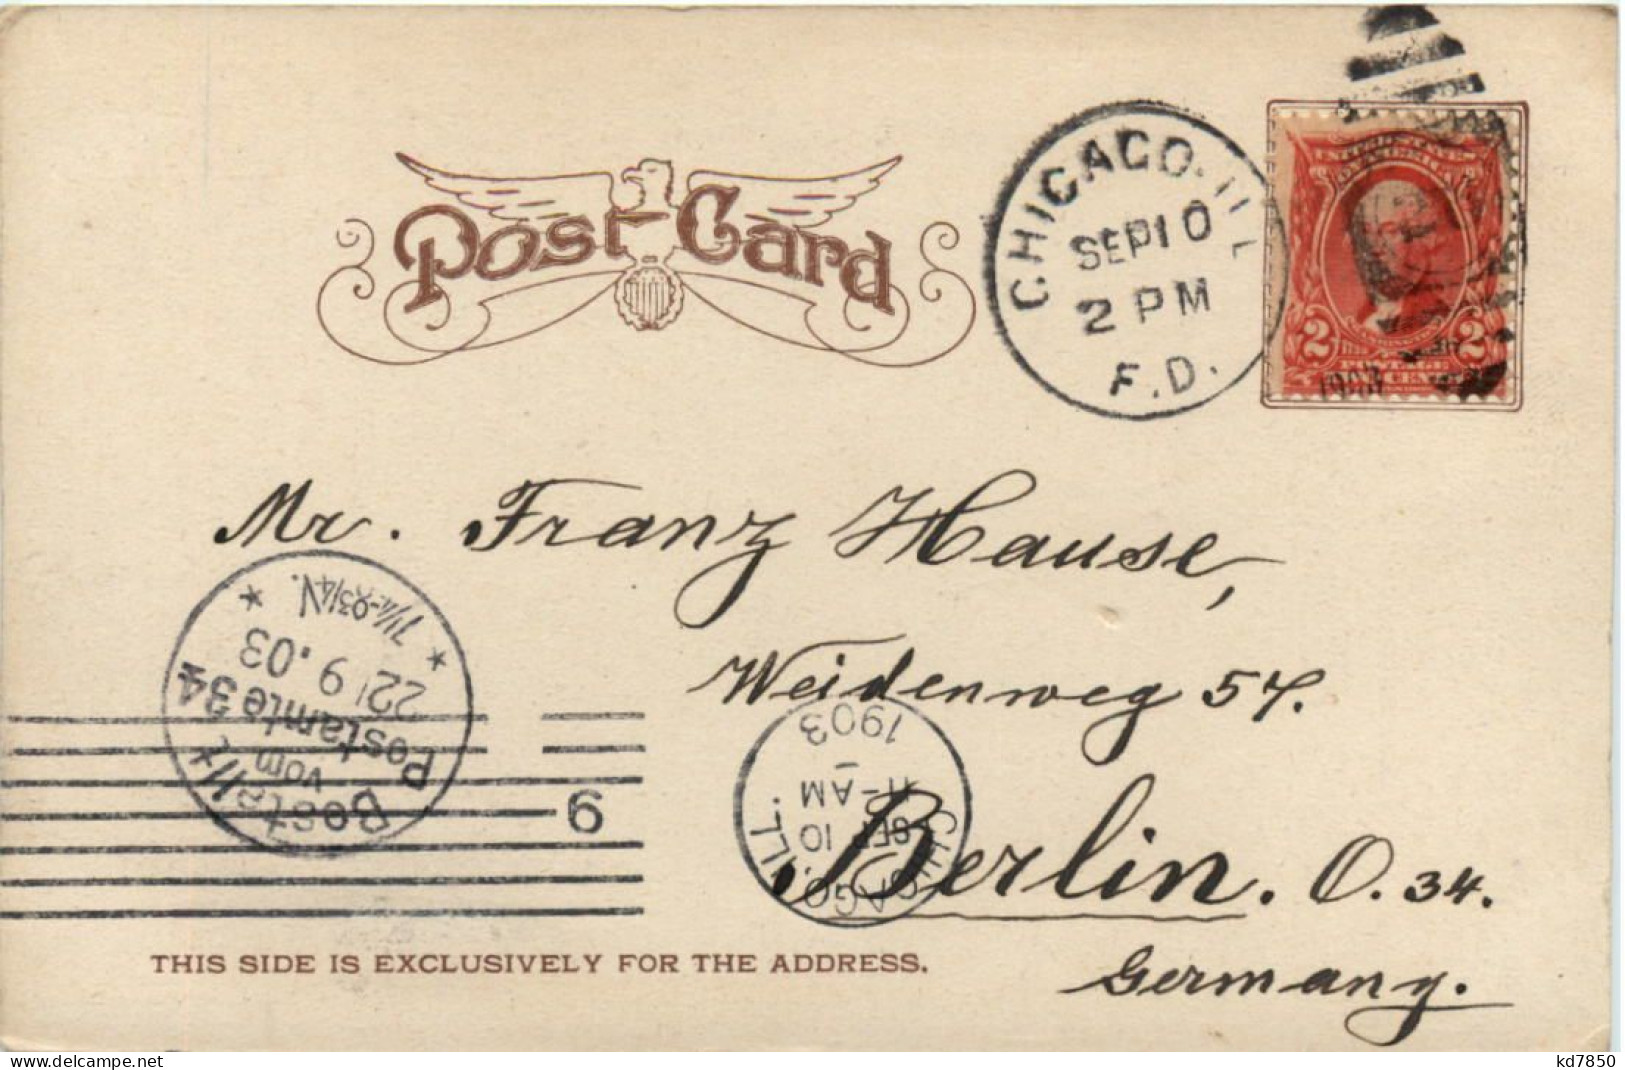 Post Card
CHICAGO. ILL
SEP 10
2 PM
F.D.
1903
2 2
Mr. Franz Hause,
Weidenweg 57.
Berlin. O. 34.
Germany.
Bestellt
vom
Postamte 34
22 9.03
CHICAGO, ILL.
SEP 10
11-AM
1903
6
THIS SIDE IS EXCLUSIVELY FOR THE ADDRESS.
www.delcampe.net
kd7850